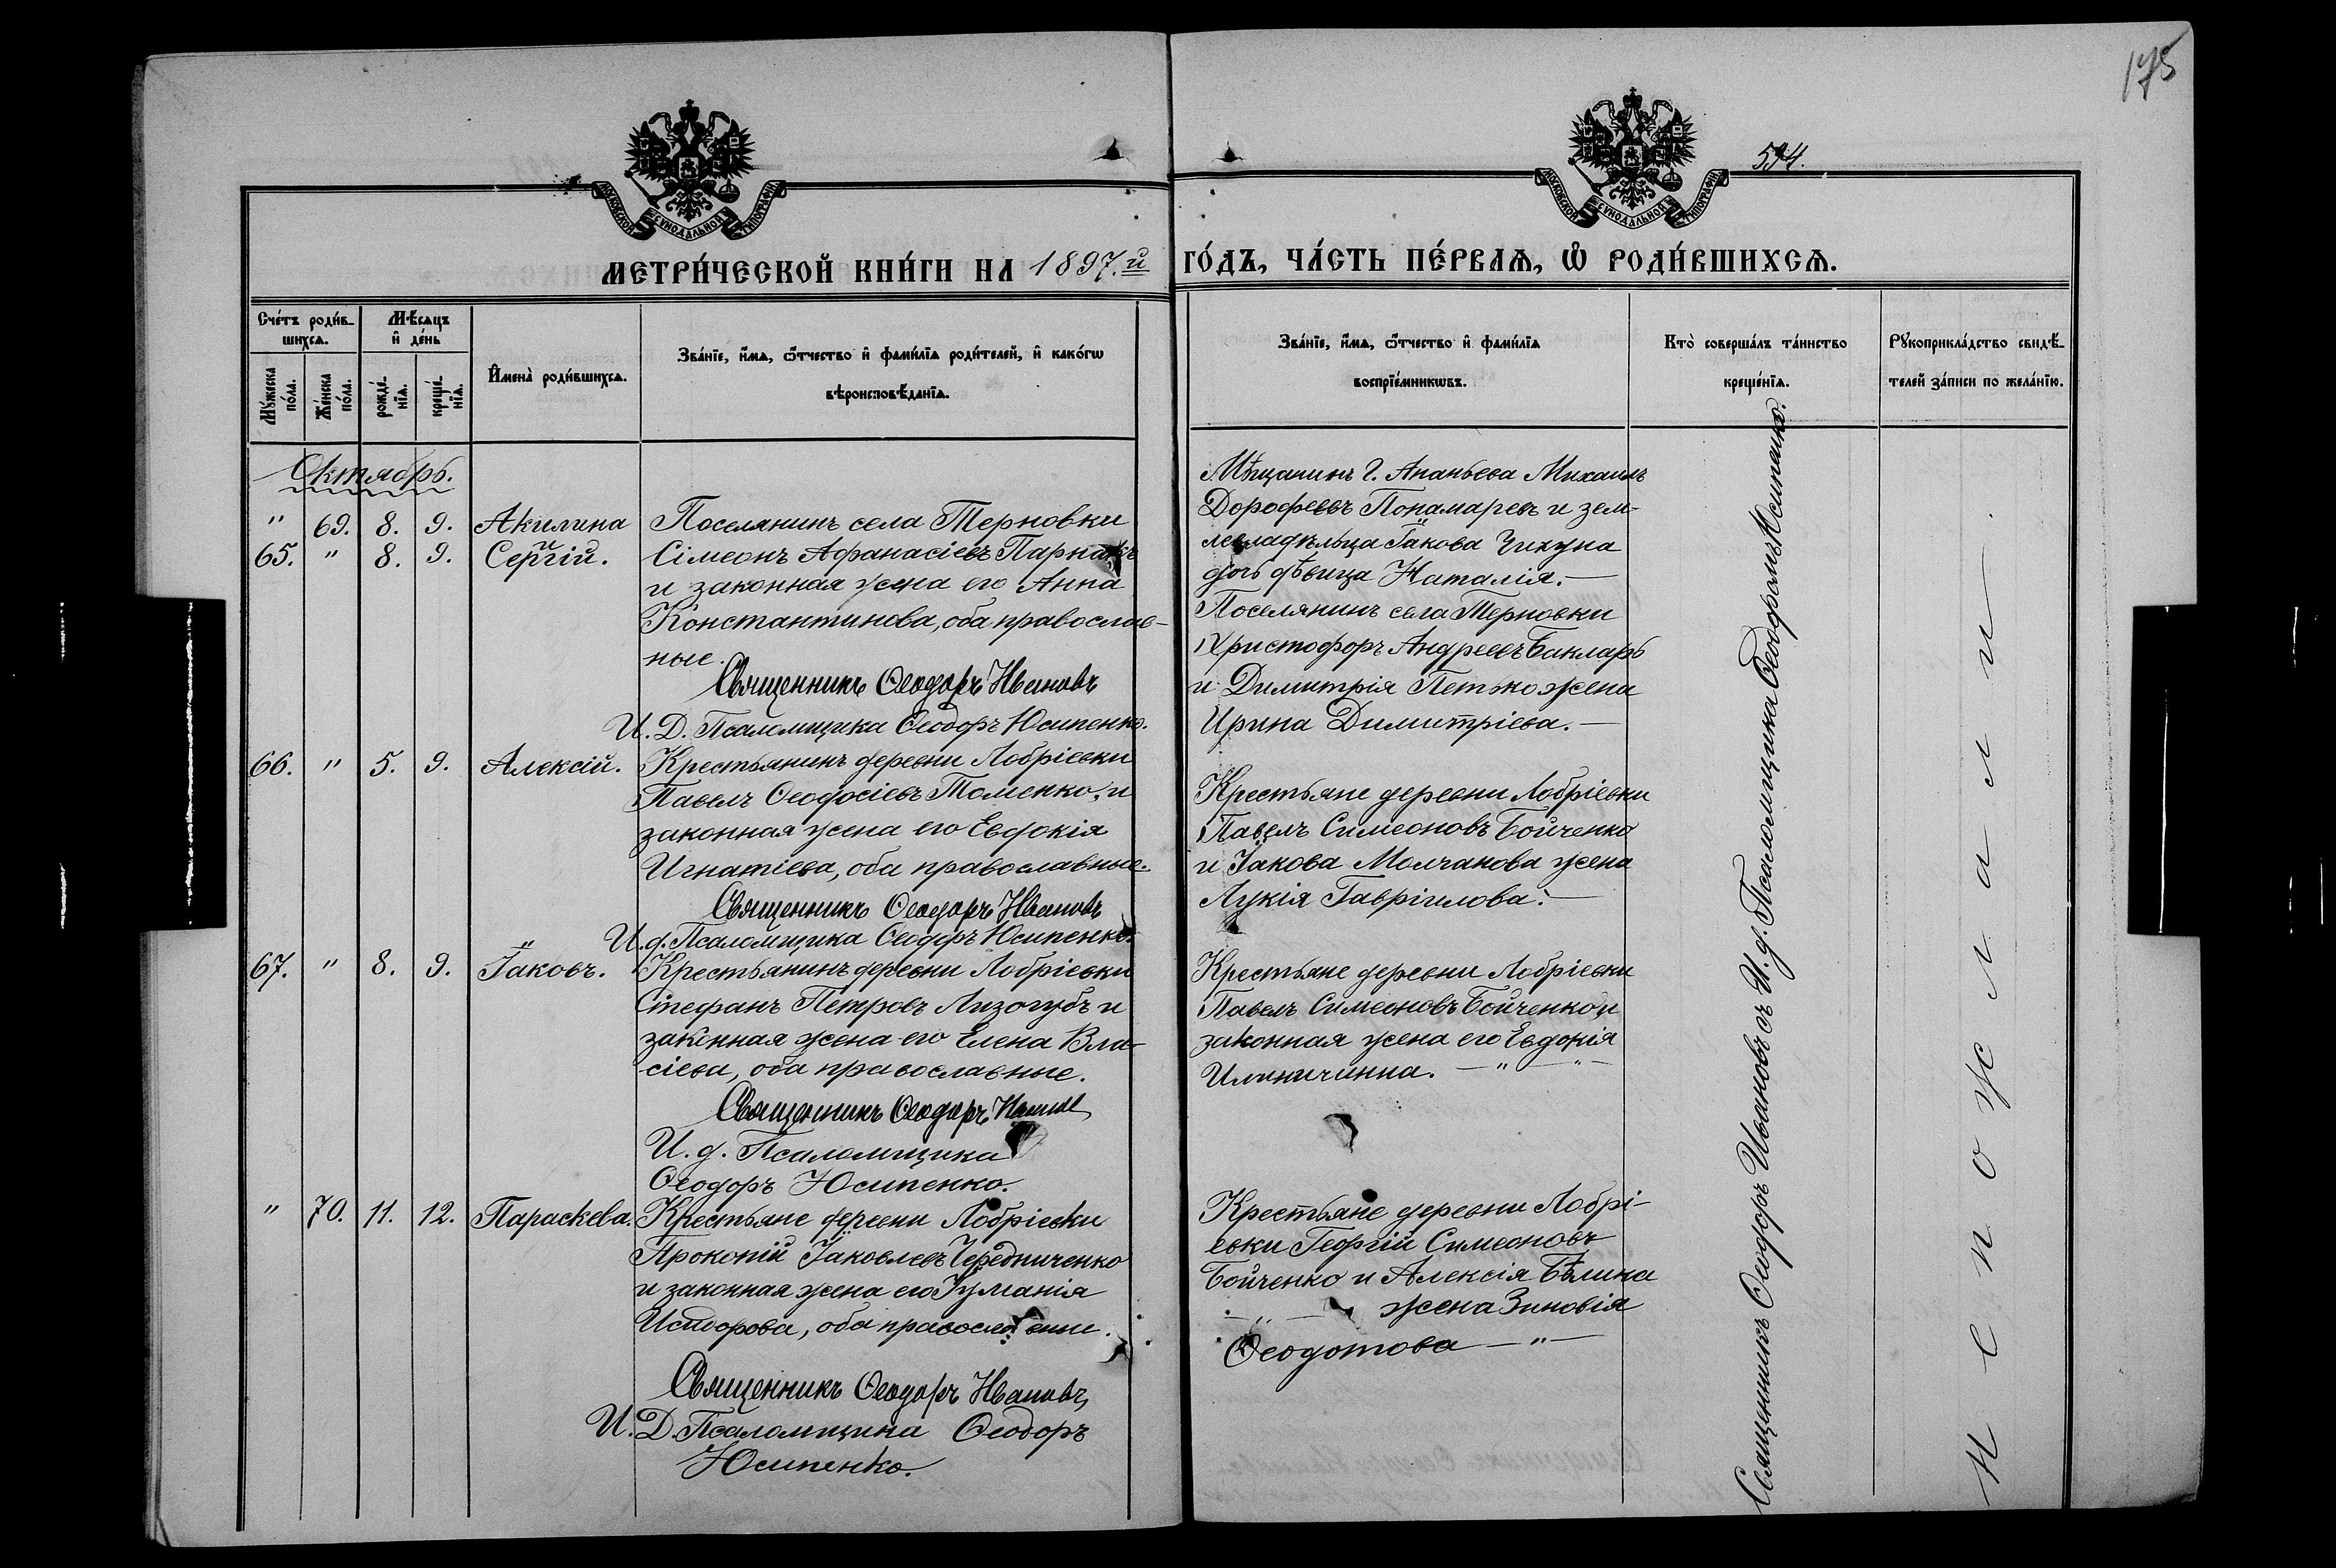 175
594.
МОСКОВСКОЙ СѴНОДАЛЬНОЙ ТИПОГРАФІИ
МОСКОВСКОЙ СѴНОДАЛЬНОЙ ТИПОГРАФІИ
МЕТРИ́ЧЕСКОЙ КНИ́ГИ НА 1897.й ГО́ДЪ, ЧА́СТЬ ПЕ́РВАѦ, Ѽ РОДИ́ВШИХСѦ.
Сче́тъ роди́в-
шихсѧ.
Мꙋ́жеска по́ла.
Же́нска по́ла.
Мѣ́сѧцъ
и҆ де́нь
рожде́-
нїѧ.
креще́-
нїѧ.
И҆мена̀ роди́вшихсѧ.
Зва́нїе, и҆́мѧ, ѻ҆́тчество и҆ фами́лїѧ роди́телей, и҆ како́гѡ
вѣроисповѣ́данїѧ.
Зва́нїе, и҆́мѧ, ѻ҆́тчество и҆ фами́лїѧ
воспрїе́мникѡвъ.
Кто̀ соверша́лъ та́инство
креще́нїѧ.
Рꙋкоприкла́дство свидѣ́-
телей за́писи по жела́нїю.
Октябрь.
" 69. 8. 9. Акилина
и
65. " 8. 9. Сергій.
Поселянинъ села Терновки
Сімеонъ Афанасіевъ Парнакъ
и законная жена его Анна
Константинова, оба православ-
ные.
Священникъ Ѳеодоръ Ивановъ
И. Д. Псаломщика Ѳеодоръ Юсипенко.
Мѣщанинъ г. Ананьева Михаилъ
Дорофеевъ Понамаревъ и зем-
левладѣльца Іакова Чикуна
дочь дѣвица Наталія. —
Поселянинъ села Терновки
Христофоръ Андреевъ Бакларъ
и Димитрія Петько жена
Ирина Димитріева. —
66. " 5. 9. Алексій.
Крестьянинъ деревни Лобріевки
Павелъ Ѳеодосіевъ Томенко, и
законная жена его Евдокія
Игнатіева, оба православные.
Священникъ Ѳеодоръ Ивановъ
И. д. Псаломщика Ѳеодоръ Юсипенко.
Крестьяне деревни Лобріевки
Павелъ Симеоновъ Бойченко
и Іакова Молчанова жена
Лукія Гавріилова. —
67. " 8. 9. Іаковъ.
Крестьянинъ деревни Лобріевки
Стефанъ Петровъ Лизогубъ и
законная жена его Елена Вла-
сіева, оба православные.
Священникъ Ѳеодоръ Ивановъ
И. д. Псаломщика
Ѳеодоръ Юсипенко.
Крестьяне деревни Лобріевки
Павелъ Симеоновъ Бойченко и
законная жена его Евдокія
Илиничинна. — " — " —
" 70. 11. 12. Параскева.
Крестьяне деревни Лобріевки
Прокопій Іаковлевъ Чередниченко
и законная жена его Іуліанія
Исидорова, оба православные.
Священникъ Ѳеодоръ Ивановъ
И. Д. Псаломщика Ѳеодоръ
Юсипенко.
Крестьяне деревни Лобрі-
евки Георгій Симеоновъ
Бойченко и Алексія Бѣлика
— " — жена Зиновія
Ѳеодотова — " —
Священникъ Ѳеодоръ Ивановъ съ И. д. Псаломщика Ѳеодоромъ Юсипенко.
Не пожелали.